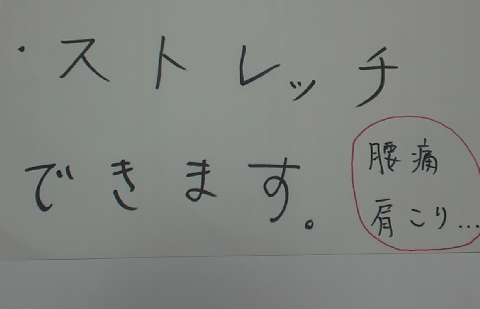 ・ストレッチ
できます。
腰痛
肩こり...